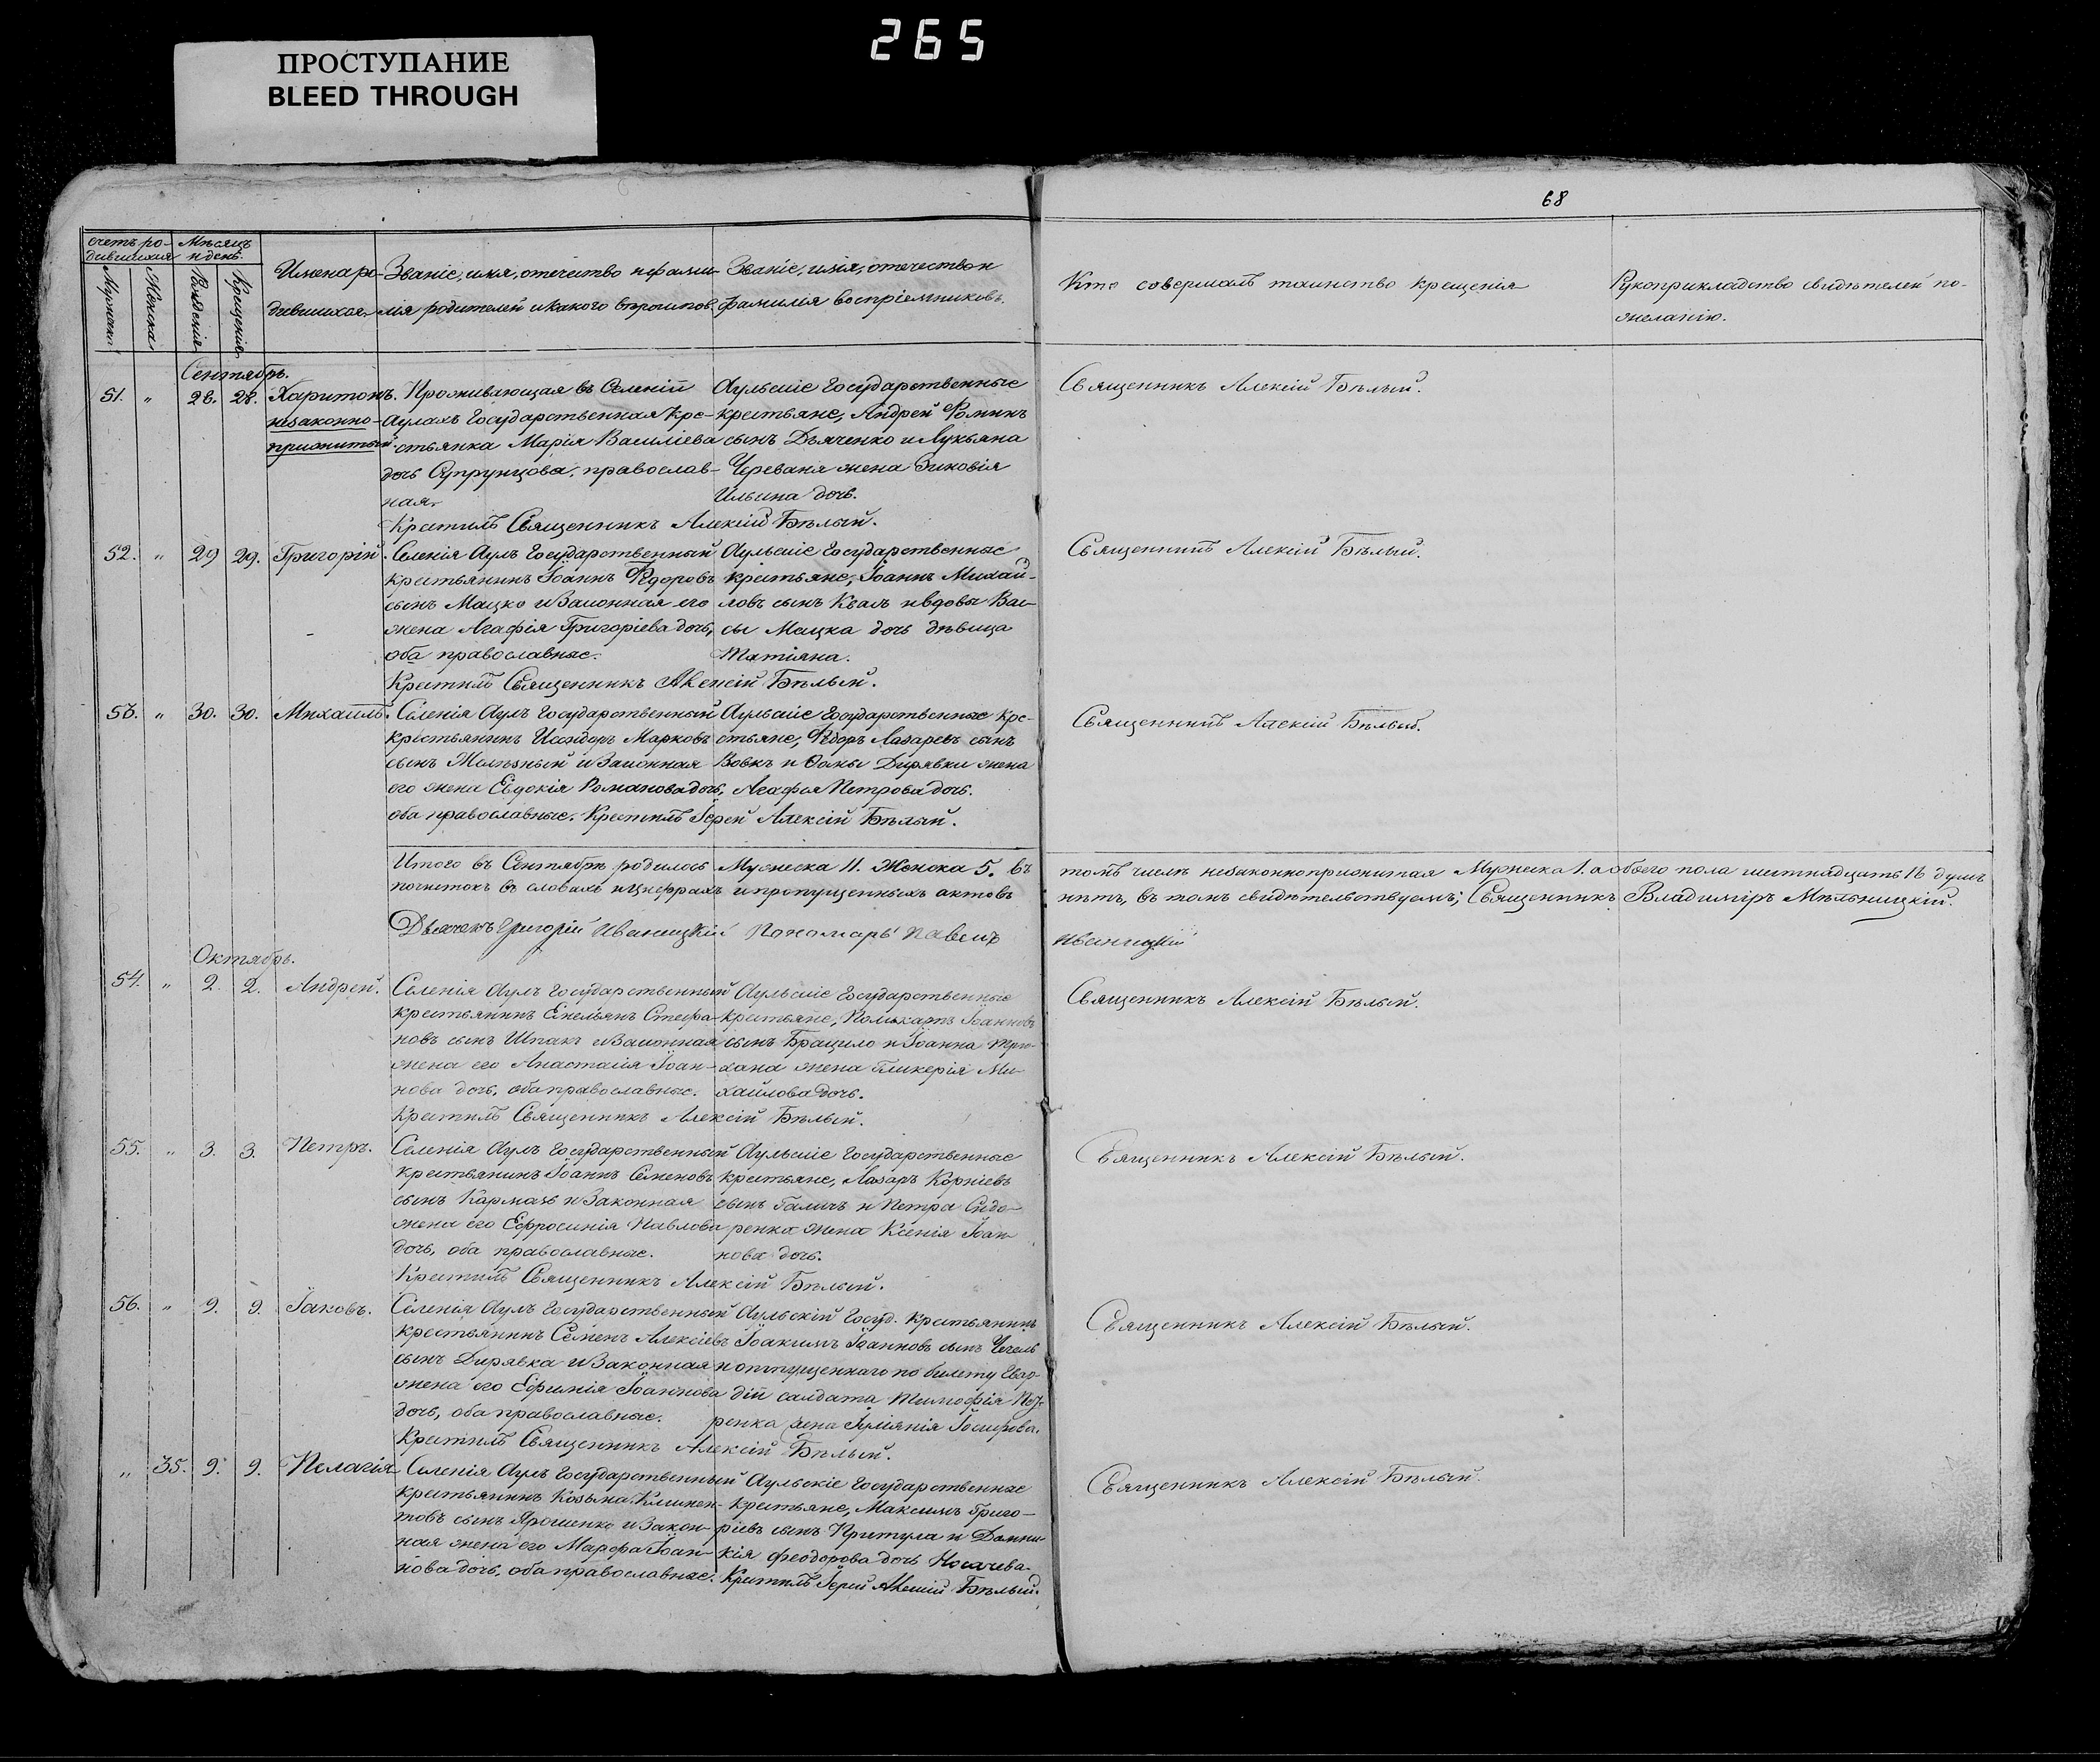 265
ПРОСТУПАНИЕ
BLEED THROUGH
68
счетъ ро-
дившихся
Мѣсяцъ
и день.
Мужеска
Женска
Рожденія
Крещенія
Имена ро-
дившихся
Званіе, имя, отечество и фами-
лія родителей и какого вѣроиспов.
Званіе, имя, отечество и
фамилія воспріемниковъ.
Кто совершалъ таинство крещенія
Рукоприкладство свидѣтелей по-
желанію.
Сентябрь.
51. " 28. 28. Харитонъ.
незаконно-
прижитый
Проживающая въ Селеніи
Аулахъ Государственная кре-
стьянка Марія Василіева
дочь Супрунцова, православ-
ная.
Аульскіе Государственные
крестьяне, Андрей Фоминъ
сынъ Дьяченко и Лукьяна
Череваня жена
Ильина дочь.
Крестилъ Священникъ Алексій Бѣлый.
Священникъ Алексій Бѣлый.
52. " 29 29. Григорій.
Селенія Аулъ Государственный
крестьянинъ Іоаннъ Ѳедоровъ
сынъ Мацко и Законная его
жена Агафія Григоріева дочь,
оба православные.
Аульскіе Государственные
крестьяне, Іоаннъ Михай-
ловъ сынъ Кваль и вдовы Вас-
сы Мацка дочь дѣвица
Татіяна.
Крестилъ Священникъ Алексій Бѣлый.
Священникъ Алексій Бѣлый.
53. " 30. 30. Михаилъ.
Селенія Аулъ Государственный
крестьянинъ Исидоръ Марковъ
сынъ и Законная
его жена Евдокія Романова дочь,
оба православные. Крестилъ Іерей Алексій Бѣлый.
Аульскіе Государственные кре-
стьяне, Ѳедоръ Лазаревъ сынъ
Вовкъ и Ѳомы Дирявки жена
Агафья Петрова дочь.
Священникъ Алексій Бѣлый.
Итого въ Сентябрѣ родилось Мужеска 11. Женска 5. въ томъ числѣ незаконноприжитая Мужеска 1. а обоего пола шестнадцать 16 душъ
почистокъ въ словахъ и цыфрахъ и пропущенныхъ актовъ нѣтъ, въ томъ свидѣтельствуемъ; Священникъ Владимиръ Мѣльницкій.
Дьячекъ Григорій Иваницкій Пономарь Павелъ Иваницкій
Октябрь.
54. " 2. 2. Андрей.
Селенія Аулъ Государственный
крестьянинъ Емельянъ Стефа-
новъ сынъ Шпакъ и Законная
жена его Анастасія Іоан-
нова дочь, оба православные.
Аульскіе Государственные
крестьяне, Поликарпъ Іоанновъ
сынъ Брацило и Іоанна
жена Гликерія Ми-
хайлова дочь.
Крестилъ Священникъ Алексій Бѣлый.
Священникъ Алексій Бѣлый.
55. " 3. 3. Петръ.
Селенія Аулъ Государственный
крестьянинъ Іоаннъ Семеновъ
сынъ Кармазь и Законная
жена его Ефросинія Павлова
дочь, оба православные.
Аульскіе Государственные
крестьяне, Лазарь Корніевъ
сынъ Галичъ и Петра Сидо-
ренка жена Ксенія Іоан-
нова дочь.
Крестилъ Священникъ Алексій Бѣлый.
Священникъ Алексій Бѣлый.
56. " 9. 9. Іаковъ.
Селенія Аулъ Государственный
крестьянинъ Семенъ Алексіевъ
сынъ Дирявка и Законная
жена его Ефимія Іоаннова
дочь, оба православные.
Аульскій Госуд. крестьянинъ
Іоакимъ Іоанновъ сынъ Чегель
и отпущеннаго по билету Гвар-
діи салдата Тимофія
ренка жена Іосифова.
Крестилъ Священникъ Алексій Бѣлый.
Священникъ Алексій Бѣлый.
" 35. 9. 9. Пелагія
Селенія Аулъ Государственный
крестьянинъ Козьма Климен-
товъ сынъ Ярошенко и Закон-
ная жена его Марфа Іоан-
нова дочь, оба православные.
Аульскіе Государственные
крестьяне, Максимъ Григо-
ріевъ сынъ Притула и Домни-
кія Феодорова дочь Носачева.
Крестилъ Іерей Алексій Бѣлый.
Священникъ Алексій Бѣлый.